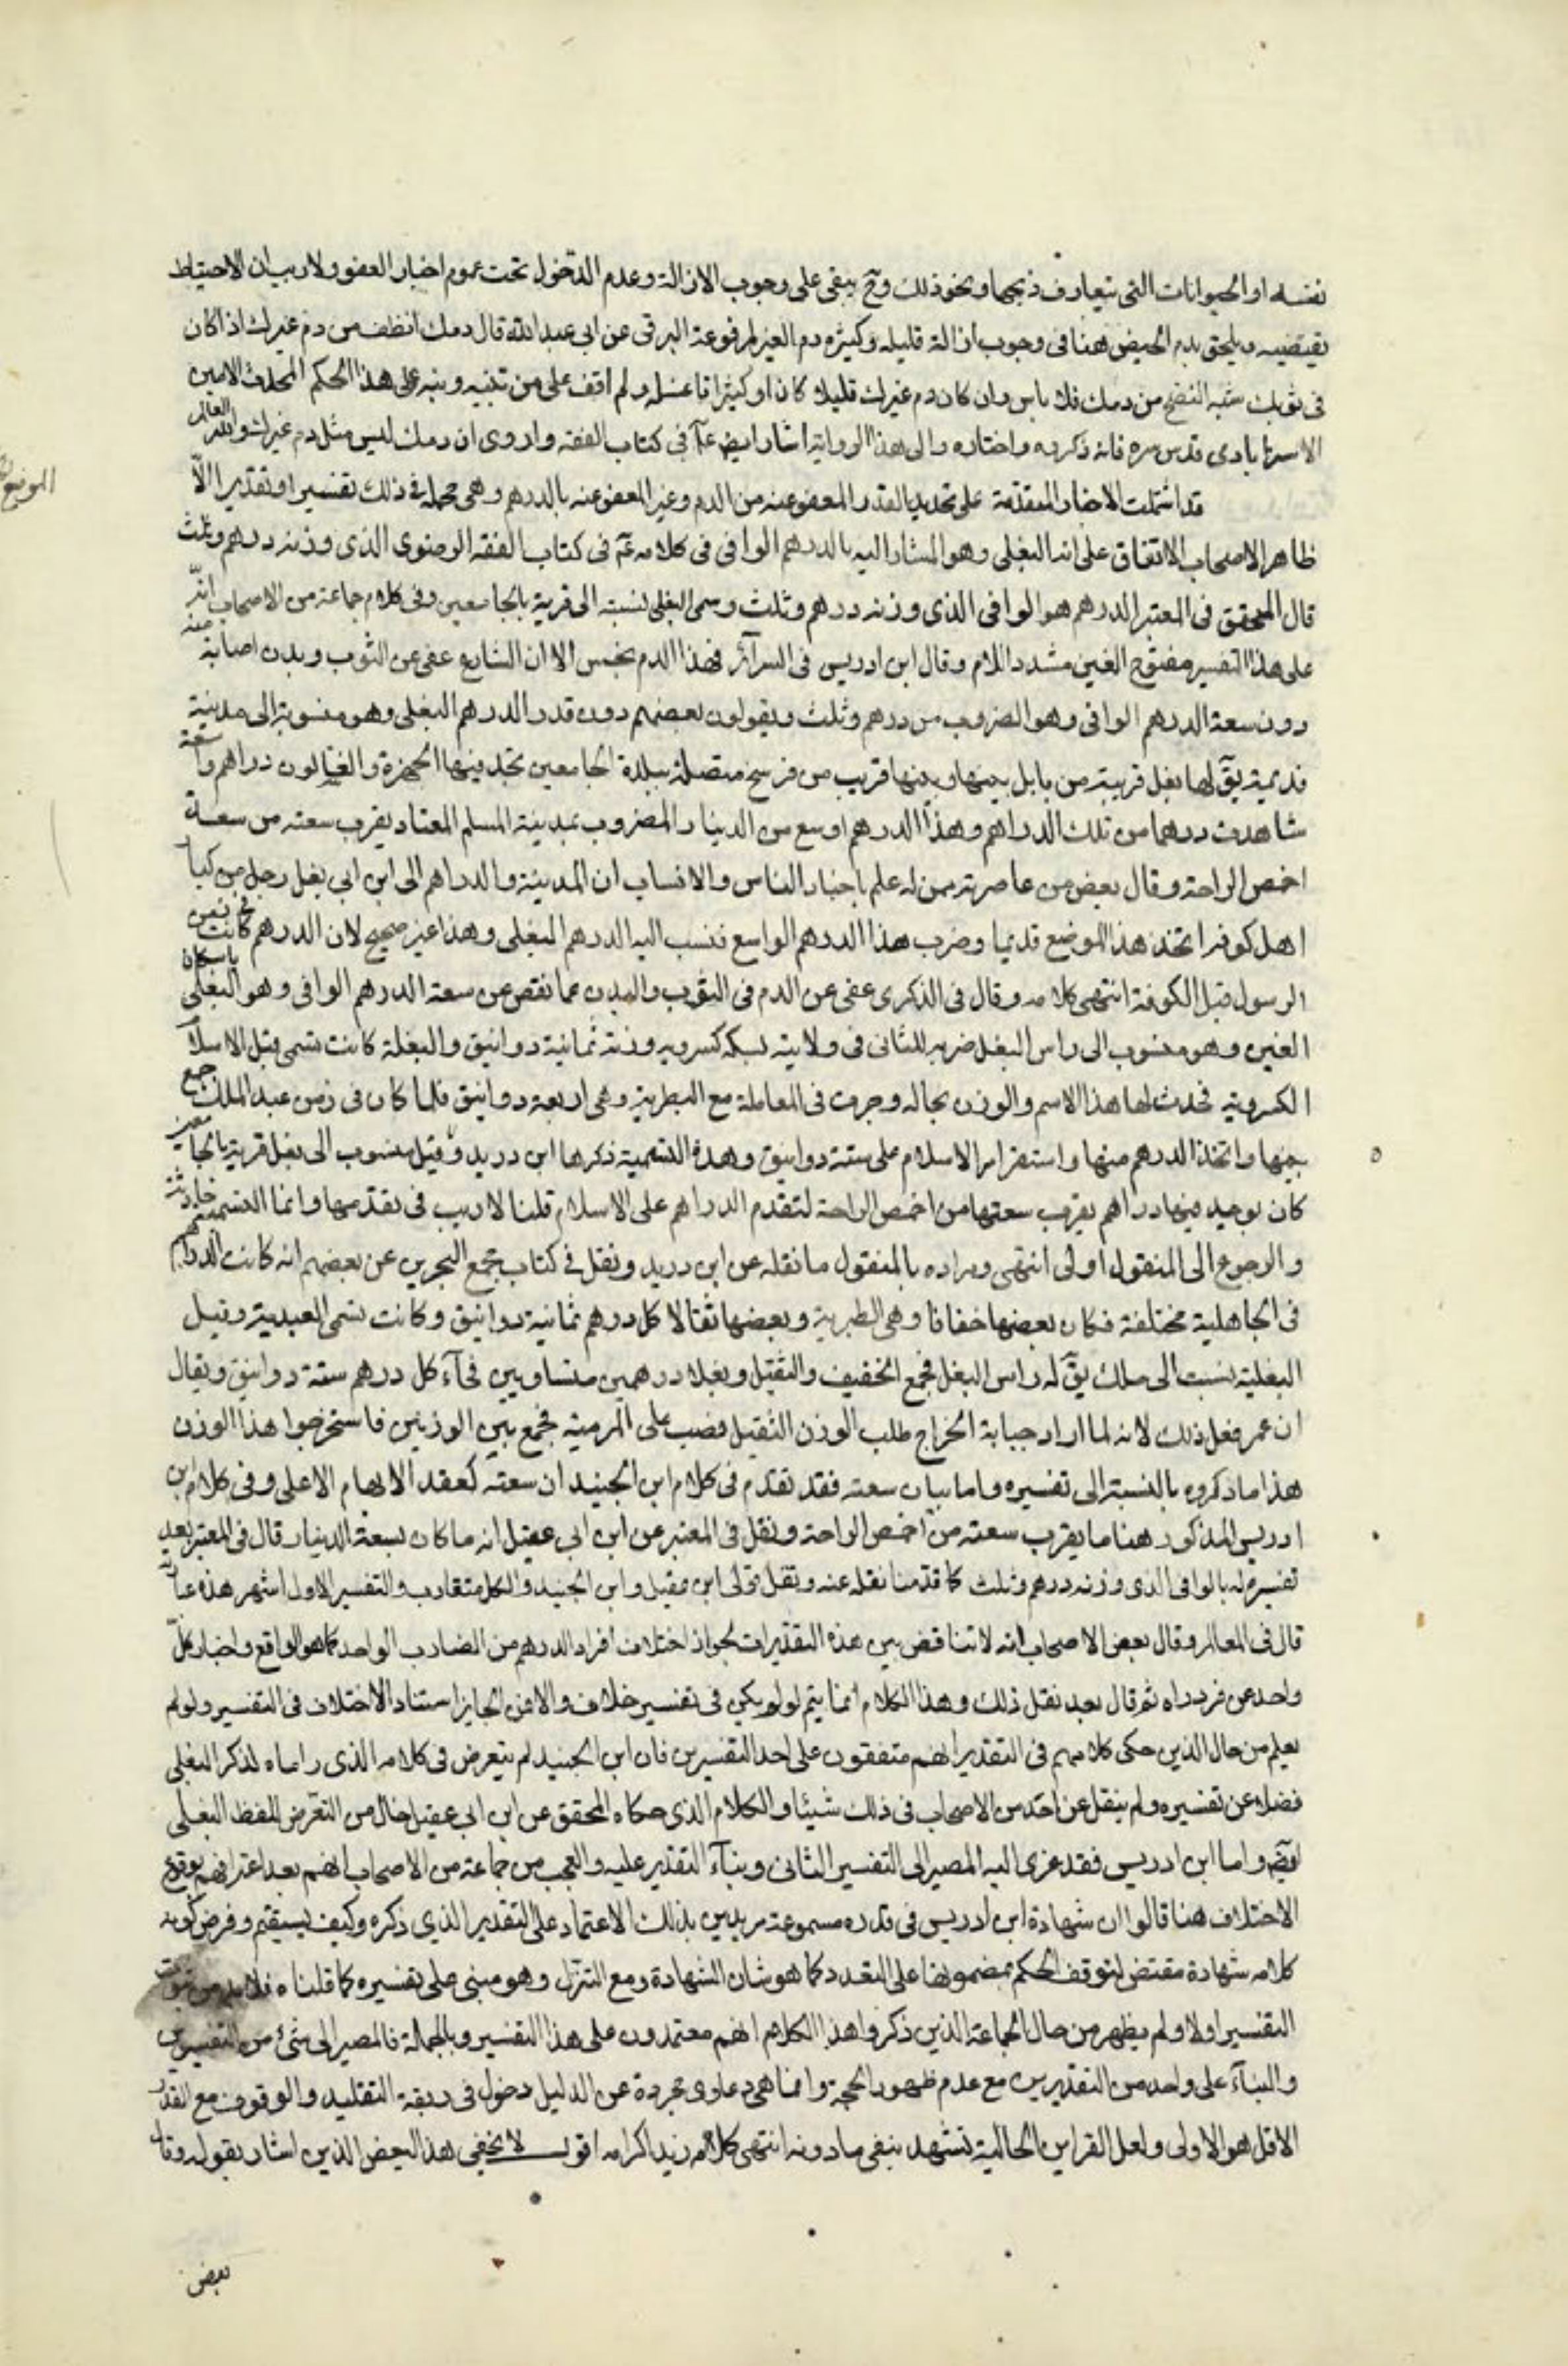 نفسه او الحيوانات التى يتعارف ذبحها ونحو ذلك وح يبقى على وجوب الازالة وعدم الدخول تحت عموم اخبار العفو ولا ريب ان الاحتياط
يقتضيه ويلحق بدم الحيض هنا فى وجوب ازالة قليله وكثيره دم الغير لمرفوعة البرقى عن ابى عبد الله قال دمك انظف من دم غيرك اذا كان
فى ثوبك شبه النضح من دمك فلا باس وان كان دم غيرك قليلا كان او كثيرا فاغسله ولم اقف على من تنبه ونبه على هذا الحكم المحدث الامين
الاسترابادى قدس سره فانه ذكره واختاره والى هذه الرواية اشار ايض ع فى كتاب الفقه واروى ان دمك ليس مثل دم غيرك والله العالم
الموضع
قد اشتملت الاخبار المتقدمة على تحديد القدر المعفو عنه من الدم وغير المعفو عنه بالدرهم وهى مجملة فى ذلك تفسيرا وتقديرا الا
ظاهر الاصحاب الاتفاق على انه البغلى وهو المشار اليه بالدرهم الوافى فى كلامه ع فى كتاب الفقه الرضوى الذى وزنه درهم وثلث
قال المحقق فى المعتبر الدرهم هو الوافى الذى وزنه درهم وثلث وسمى البغلى نسبته الى قرية بالجامعين وفى كلام جماعة من الاصحاب انه
على هذا التفسير مفتوح الغين مشدد اللام وقال ابن ادريس فى السرآئر فهذا الدم نجس الا ان الشارع عفى عن الثوب وبدن اصابة منه
دون سعة الدرهم الوافى وهو المضروب من درهم وثلث ويقولون بعضهم دون قدر الدرهم البغلى وهو منسوبة الى مدينة
قديمة يق لها بغل قريبة من بابل بينها وبينها قريب من فرسخ متصلة ببلدة الجامعين تجد فيها الحفرة والغسالون دراهم واسعة
شاهدت درهما من تلك الدراهم وهذا الدرهم اوسع من الدينار المضروب بمدينة السلم المعتاد يقرب سعته من سعة
اخمص الراحة وقال بعض من عاصرته ممن له علم باخبار الناس والانساب ان المدينة والدراهم الى ابن ابى بغل رجل من كبار
اهل كوفه اتخذ هذا الموضع قديما وضرب هذا الدرهم الواسع فنسب اليه الدرهم البغلى وهذا غير صحيح لان الدرهم كانت فى زمن
الرسول قبل الكوفة انتهى كلامه وقال فى الذكرى عفى عن الدم فى الثوب والبدن عما نقص عن سعة الدرهم الوافى وهو البغلى باسكان
الغين وهو منسوب الى راس البغل ضربه للثانى فى ولايته بسكه كسرويه وزنته ثمانية دوانيق والبغلة كانت تسمى قبل الاسلام
الكسروية فحدث لها هذا الاسم والوزن بحاله وجرت فى المعاملة مع الطبرية وهى اربعة دوانيق فلما كان فى زمن عبد الملك جمع
بينها واتخذ الدرهم منها واستقر امر الاسلام على ستة دوانيق وهذه التسمية ذكرها ابن دريد وقيل منسوب الى بغل قرية بالجامعين
كان يوجد فيها دراهم يقرب سعتها من اخمص الراحة لتقدم الدراهم على الاسلام قلنا لا ريب فى تقدمها وانما التسمية حادثة
والرجوع الى المنقول اولى انتهى ومراده بالمنقول ما نقله عن ابن دريد ونقل فى كتاب مجمع البحرين عن بعضهم انه كانت الدراهم
فى الجاهلية مختلفة فكان بعضها خفافا وهى الطبرية وبعضها ثقالا كل درهم ثمانية دوانيق وكانت تسمى العبدية وقيل
البغلية نسبت الى ملك يق له راس البغل فجمع الخفيف والثقيل وبغلا درهمين متساويين فجآء كل درهم ستة دوانيق ويقال
ان عمر فعل ذلك لانه لما اراد جباية الخراج طلب الوزن الثقيل فصعب على الرعية فجمع بين الوزنين فاستخرجوا هذا الوزن
هذا ما ذكروه بالنسبة الى تفسيره واما بيان سعته فقد تقدم فى كلام ابن الجنيد ان سعته كعقد الابهام الاعلى وفى كلام ابن
ادريس المذكور هنا ما يقرب سعته من اخمص الراحة ونقل فى المعتبر عن ابن ابى عقيل انه ما كان بسعة الدينار قال فى المعتبر بعد
تفسيره له بالوافى الذى وزنه درهم وثلث كما قدمنا نقله عنه ونقل قولى ابن عقيل وابن الجنيد والكل متقارب والتفسير الاول اشهر هذه عبارته
قال فى المعالم وقال بعض الاصحاب انه لا تناقض بين هذه التقديرات لجواز اختلاف افراد الدرهم من الضارب الواحد كما هو الواقع واخبار كل
واحد عن فرد راه ثم قال بعد نقل ذلك وهذا الكلام انما يتم لو لم يكن فى تفسير خلاف والا فمن الجايز استناد الاختلاف فى التفسير ولو لم
يعلم من حال الذين حكى كلامهم فى التقدير انهم متفقون على احد التفسيرين فان ابن الجنيد لم يتعرض فى كلامه الذى راماه لذكر البغلى
فضلا عن تفسيره ولم ينقل عن احد من الاصحاب فى ذلك شيئا والكلام الذى حكاه المحقق عن ابن ابى عقيل خال من التعرض للفظ البغلى
ايض واما ابن ادريس فقد عزى اليه المصير الى التفسير الثانى وبنآء التقدير عليه والعجب من جماعة من الاصحاب انهم بعد اعترافهم بوقوع
الاختلاف هنا قالوا ان شهادة ابن ادريس فى قدره مسموعة مريدين بذلك الاعتماد على التقدير الذى ذكره وكيف يستقيم وفرض كونه
كلامه شهادة مقتض لتوقف الحكم بمضمونها على التعدد كما هو شان الشهادة ومع التنزل وهو مبنى على تفسيره كما قلناه فلا بد من ثبوت
التفسير اولا ولم يظهر من حال الجماعة الذين ذكروا هذا الكلام انهم معتمدون على هذا التفسير وبالجملة فالمصير الى شئ من التفسيرين
والبنآء على واحد من التقديرين مع عدم ظهور الحجة وانما هى دعاوى مجردة عن الدليل دخول فى ربقة التقليد والوقوف مع القدر
الاقل هو الاولى ولعل القراين الحالية تشهد بنفى ما دونه انتهى كلامه زيد اكرامه اقول لا يخفى هذا البعض الذين اشار بقوله وقال
بعض